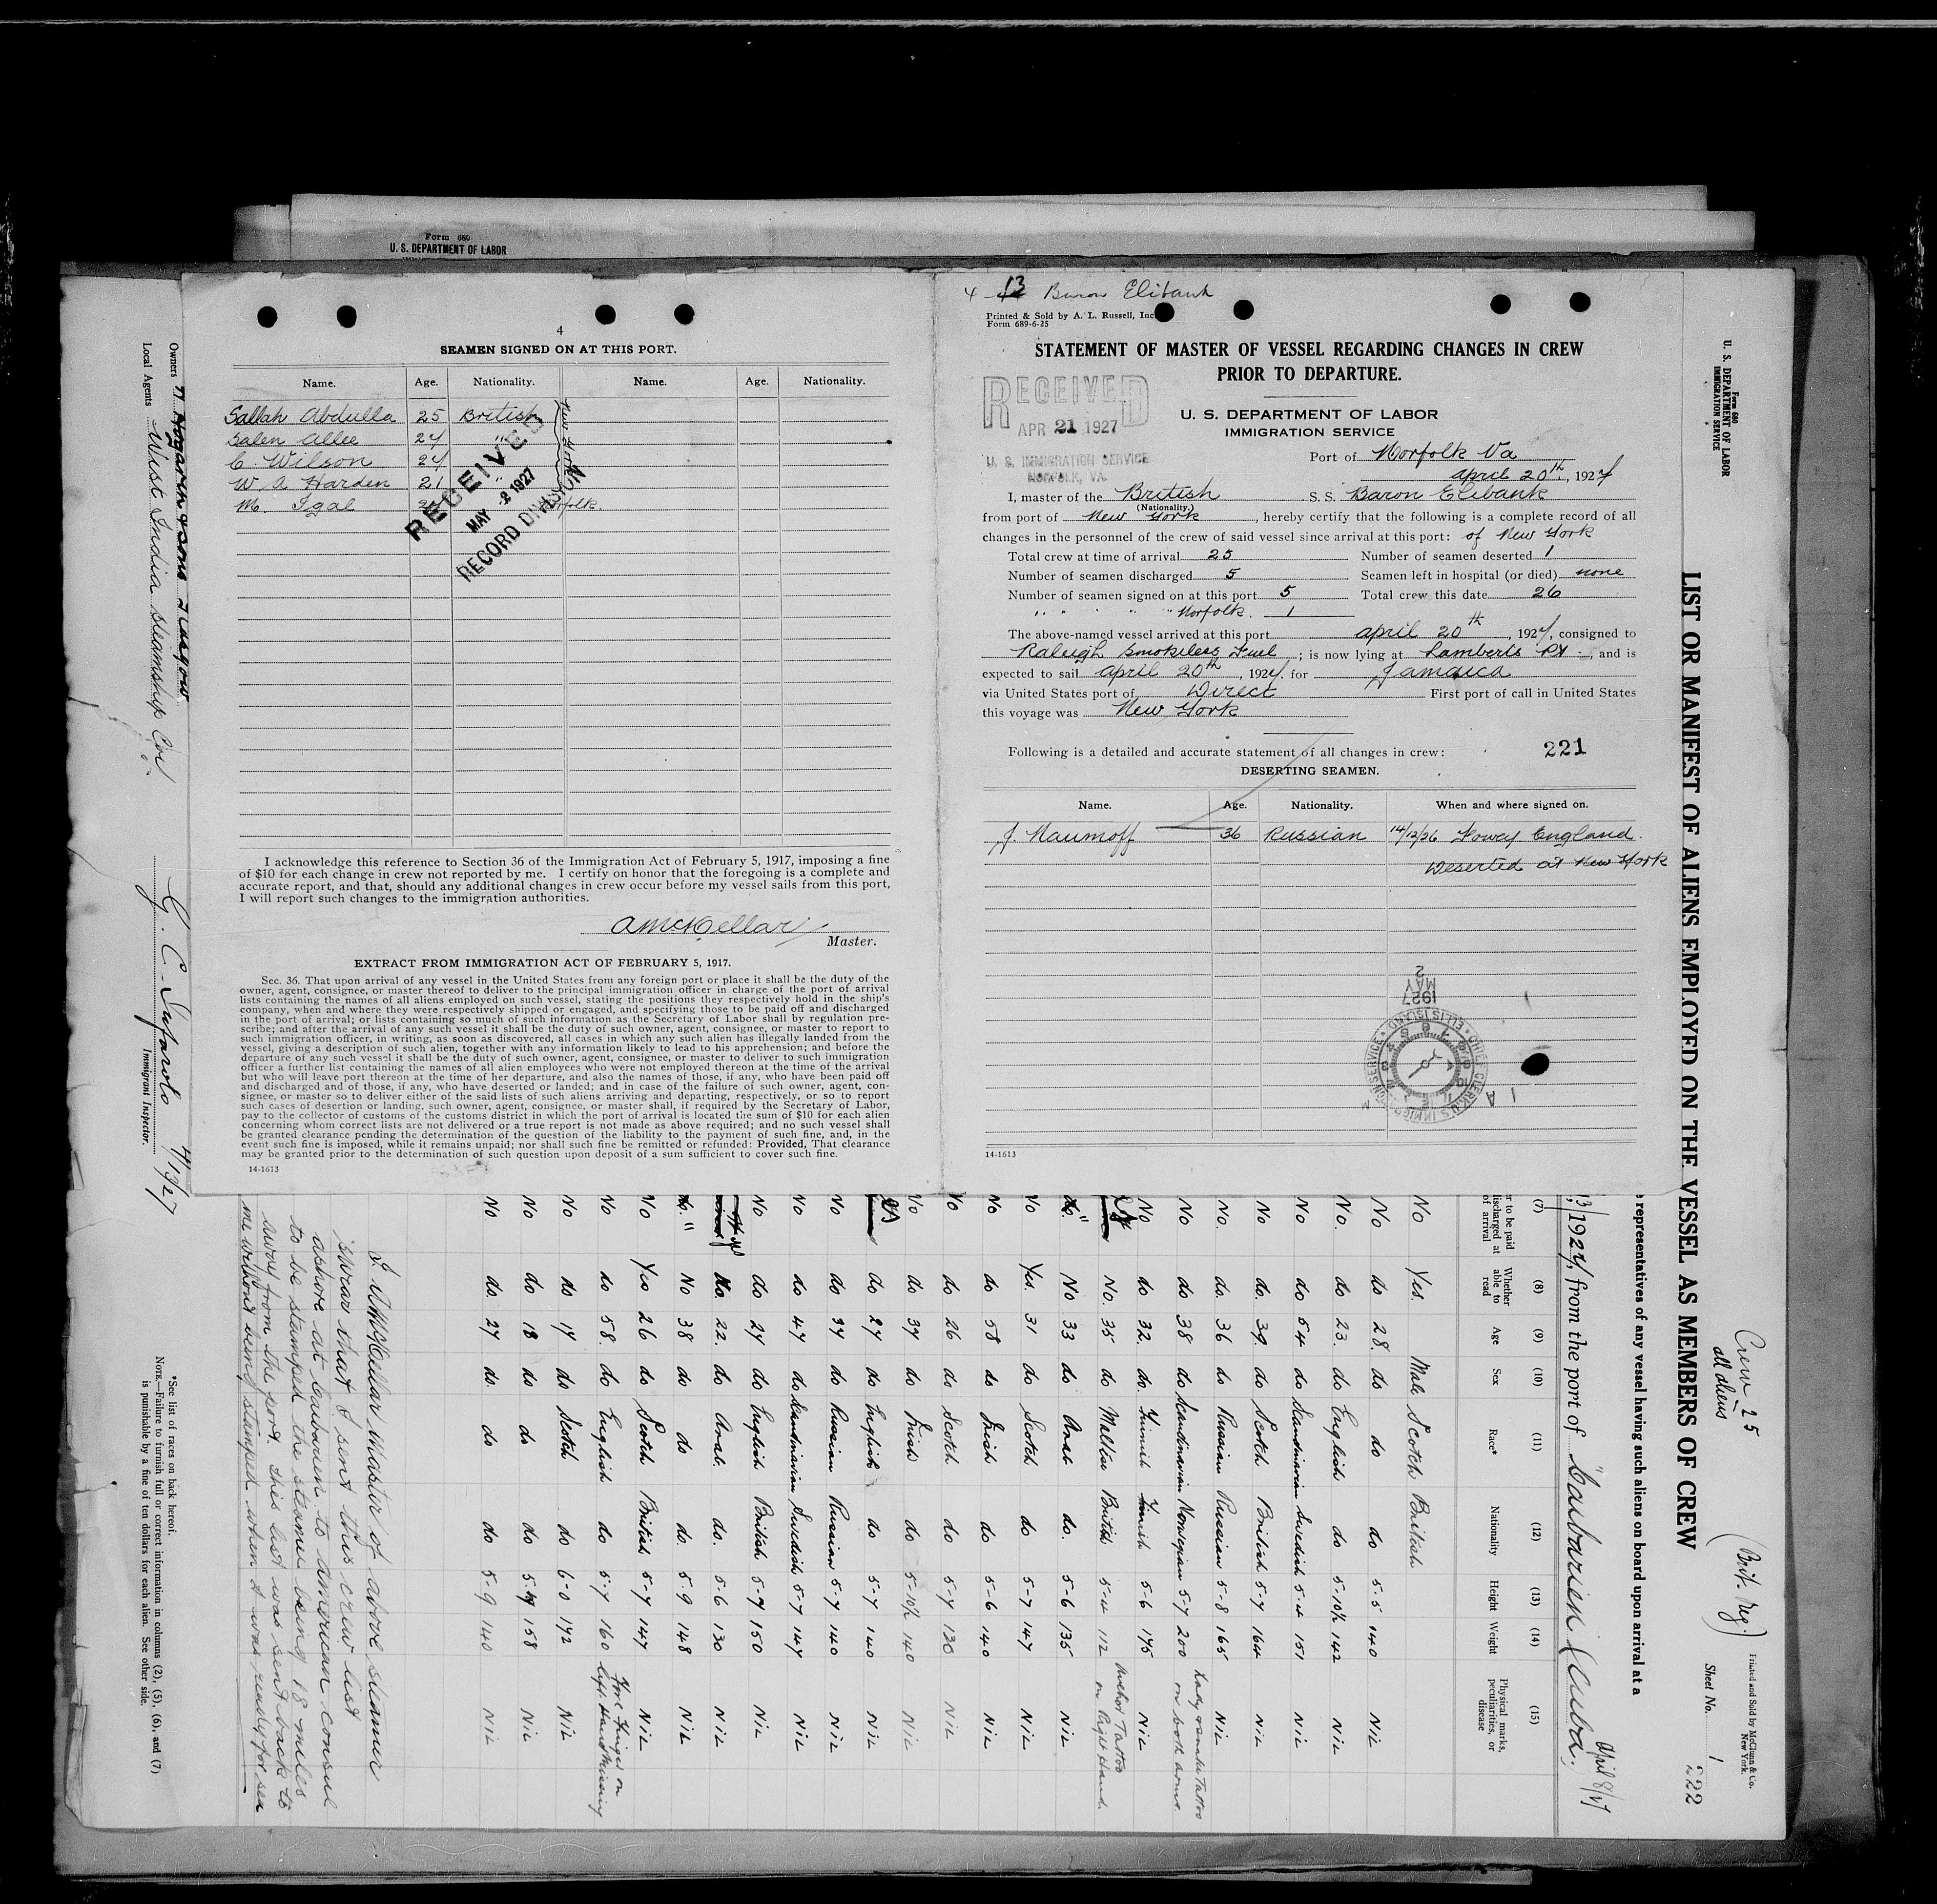 Form 689
U. S. DEPARTMENT OF LABOR
4
SEAMEN SIGNED ON AT THIS PORT.
Name. Age. Nationality. Name. Age. Nationality.
Sallah Abdulla 25 British
Salen Allee 24 "
C. Wilson 24
W A Harden 21 "
M. Igal
New York
Norfolk
RECEIVED
MAY 2 1927
RECORD DIVISION
I acknowledge this reference to Section 36 of the Immigration Act of February 5, 1917, imposing a fine
of $10 for each change in crew not reported by me. I certify on honor that the foregoing is a complete and
accurate report, and that, should any additional changes in crew occur before my vessel sails from this port,
I will report such changes to the immigration authorities.
A McKellar
Master.
EXTRACT FROM IMMIGRATION ACT OF FEBRUARY 5, 1917.
Sec. 36. That upon arrival of any vessel in the United States from any foreign port or place it shall be the duty of the
owner, agent, consignee, or master thereof to deliver to the principal immigration officer in charge of the port of arrival
lists containing the names of all aliens employed on such vessel, stating the positions they respectively hold in the ship's
company, when and where they were respectively shipped or engaged, and specifying those to be paid off and discharged
in the port of arrival; or lists containing so much of such information as the Secretary of Labor shall by regulation pre-
scribe; and after the arrival of any such vessel it shall be the duty of such owner, agent, consignee, or master to report to
such immigration officer, in writing, as soon as discovered, all cases in which any such alien has illegally landed from the
vessel, giving a description of such alien, together with any information likely to lead to his apprehension; and before the
departure of any such vessel it shall be the duty of such owner, agent, consignee, or master to deliver to such immigration
officer a further list containing the names of all alien employees who were not employed thereon at the time of the arrival
but who will leave port thereon at the time of her departure, and also the names of those, if any, who have been paid off
and discharged and of those, if any, who have deserted or landed; and in case of the failure of such owner, agent, con-
signee, or master so to deliver either of the said lists of such aliens arriving and departing, respectively, or so to report
such cases of desertion or landing, such owner, agent, consignee, or master shall, if required by the Secretary of Labor,
pay to the collector of customs of the customs district in which the port of arrival is located the sum of $10 for each alien
concerning whom correct lists are not delivered or a true report is not made as above required; and no such vessel shall
be granted clearance pending the determination of the question of the liability to the payment of such fine, and, in the
event such fine is imposed, while it remains unpaid; nor shall such fine be remitted or refunded: Provided, That clearance
may be granted prior to the determination of such question upon deposit of a sum sufficient to cover such fine.
14-1613
4-13 Baron Elibank
Printed & Sold by A. L. Russell, Inc.
Form 689-6-25
STATEMENT OF MASTER OF VESSEL REGARDING CHANGES IN CREW
PRIOR TO DEPARTURE.
RECEIVED
APR 21 1927
U. S. IMMIGRATION SERVICE
NORFOLK, VA.
U. S. DEPARTMENT OF LABOR
IMMIGRATION SERVICE
Port of Norfolk Va
April 20th, 1927
I, master of the British S. S. Baron Elibank
(Nationality.)
from port of New York, hereby certify that the following is a complete record of all
changes in the personnel of the crew of said vessel since arrival at this port: of New York
Total crew at time of arrival 25 Number of seamen deserted 1
Number of seamen discharged 5 Seamen left in hospital (or died) none
Number of seamen signed on at this port 5 Total crew this date 26
" " " " " Norfolk. 1
The above-named vessel arrived at this port April 20th, 1927, consigned to
Raleigh Smokeless Fuel; is now lying at Lamberts Pt, and is
expected to sail April 20th, 1927. for Jamaica
via United States port of Direct First port of call in United States
this voyage was New York
Following is a detailed and accurate statement of all changes in crew: 221
DESERTING SEAMEN.
Name. Age. Nationality. When and where signed on.
J. Naumoff 36 Russian 14/12/26 Fowey England.
Deserted at New York
MAY 2
1927
14-1613
Form 680
U. S. DEPARTMENT OF LABOR
IMMIGRATION SERVICE
LIST OR MANIFEST OF ALIENS EMPLOYED ON THE VESSEL AS MEMBERS OF CREW
Crew 25
all aliens
(Brit. Reg)
Printed and Sold by McClunn & Co.
New York.
Sheet No. 1
222
representatives of any vessel having such aliens on board upon arrival at a
13/1927, from the port of "Caibarien (Cuba. April 8/27
(7) (8) (9) (10) (11) (12) (13) (14) (15)
r to be paid discharged at of arrival Whether able to read Age Sex Race* Nationality Height Weight Physical marks, peculiarities, or disease
No Yes. Male Scotch British
No do 28 do do do 5-5 140 Nil
No. do 23. do English do 5-10½ 142 Nil
No do 54 do Scandinavian Swedish 5-4 151 Nil
No do. 39. do Scotch British 5-7 164 Nil
No. do. 36 do Russian Russian 5-8 165 Nil
No do 38 do Scandinavian Norwegian 5-7 200 Lady & snake Tattoo on both arms.
No do 32. do. Finnish Finnish 5-6 175 Nil
No. 35 do Maltese British 5-4 112 Anchor Tattoo on Right Hand.
do. " No 33 do Arab do. 5-6 135 Nil
No Yes. 31 do Scotch do 5-7 147 Nil
No do 58 do Irish do 5-6 140 Nil
No do 26 do Scotch do 5-7 130 Nil
No do 37 do Irish do 5-10½ 140 Nil
do 27 do English do 5-7 140 Nil
No do 37 do Russian Russian 5-7 140 Nil
No do 47 do Scandinavian Swedish 5-7 147 Nil
No do 27 do English British 5-7 150 Nil
No. 22. do Arab. do. 5-6 130 Nil
do. " No 38 do do do. 5-9 148 Nil
No Yes 26 do Scotch British 5-7 147 Nil
No do 58. do English do 5-7 160 Fore Finger on left Hand Missing
No do 17 do Scotch do 6-0 172 Nil
No do 18 do do do 5-7 158 Nil
No do. 27 do. do do 5-9 140 Nil
I A McKellar Master of above steamer
swear that I sent this crew list
ashore at Caibarien to American consul
to be stamped the steamer being 18 miles
away from the port. this list was sent back to
me without being stamped when I was ready for sea
*See list of races on back hereof.
NOTE.—Failure to furnish full or correct information in columns (2), (5), (6), and (7)
is punishable by a fine of ten dollars for each alien. See other side.
Owners H Hogarth & Sons Glasgow
Local Agents West India Steamship Co
Immigrant Inspector.